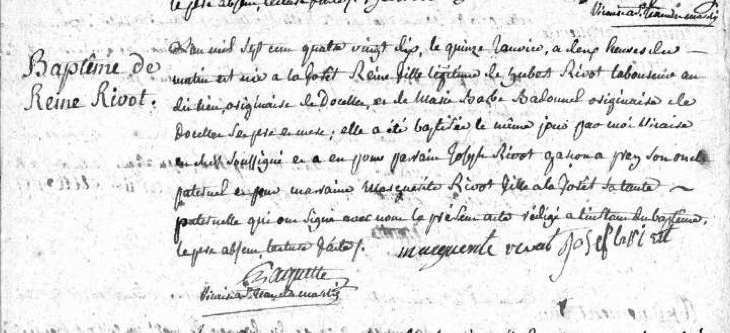 le pere absent, lecture faite
Vicaire
Baptême de
Reine Rivot.
L'an mil sept cent quatre vingt dix, le quinze Janvier, a deux heures du
matin est née a la forêt Reine fille légitime de hubert Rivot laboureur au
dit lieu, originaire de Docelles, et de Marie Barbe Badonnel originaire de
Docelles ses pere et mere; elle a été baptisée le même jour par moi Vicaire
en chef soussigné et a eu pour parrain Joseph Rivot garçon a prey son oncle
paternel et pour marraine Marguerite Rivot fille a la forêt sa tante
paternelle qui ont signé avec nous le présent acte rédigé a l'instant du baptême,
le pere absent, lecture faite.
marguerite rivot Josef
Vicaire